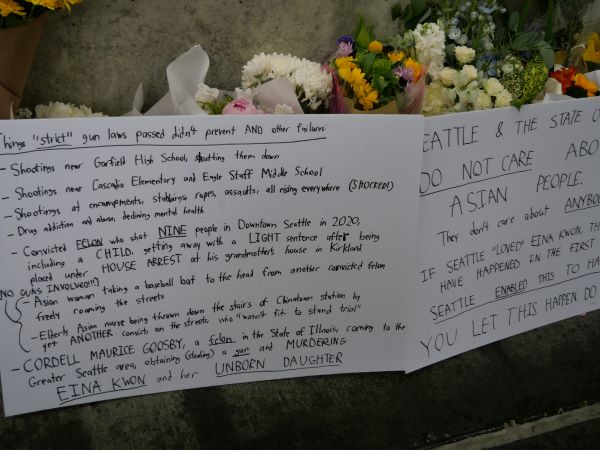 Things "strict" gun laws passed didn't prevent AND other failures:
- Shootings near Garfield High School, shutting them down
- Shootings near Cascadia Elementary and Eagle Staff Middle School
- Shootings at encampments, stabbings, rapes, assaults, all rising everywhere (SHOCKER!)
- Drug addiction and abuse, declining mental health
- Convicted FELON who shot NINE people in Downtown Seattle in 2020,
including a CHILD, getting away with a LIGHT sentence after being
placed under HOUSE ARREST at his grandmother's house in Kirkland
NO GUNS INVOLVED!!!
- Asian woman taking a baseball bat to the head from another convicted felon
freely roaming the streets
- Elderly Asian nurse being thrown down the stairs of Chinatown station by
yet ANOTHER convict on the streets who "wasn't fit to stand trial"
- CORDELL MAURICE GOOSBY, a felon in the State of Illinois, coming to the
Greater Seattle area, obtaining (stealing) a gun and MURDERING
EINA KWON and her UNBORN DAUGHTER
SEATTLE & THE STATE O
DO NOT CARE ABO
ASIAN PEOPLE.
They don't care about ANYBO
IF SEATTLE "LOVED" EINA KWON, TH
HAVE HAPPENED IN THE FIRST
SEATTLE ENABLED THIS TO HA
YOU LET THIS HAPPEN DO